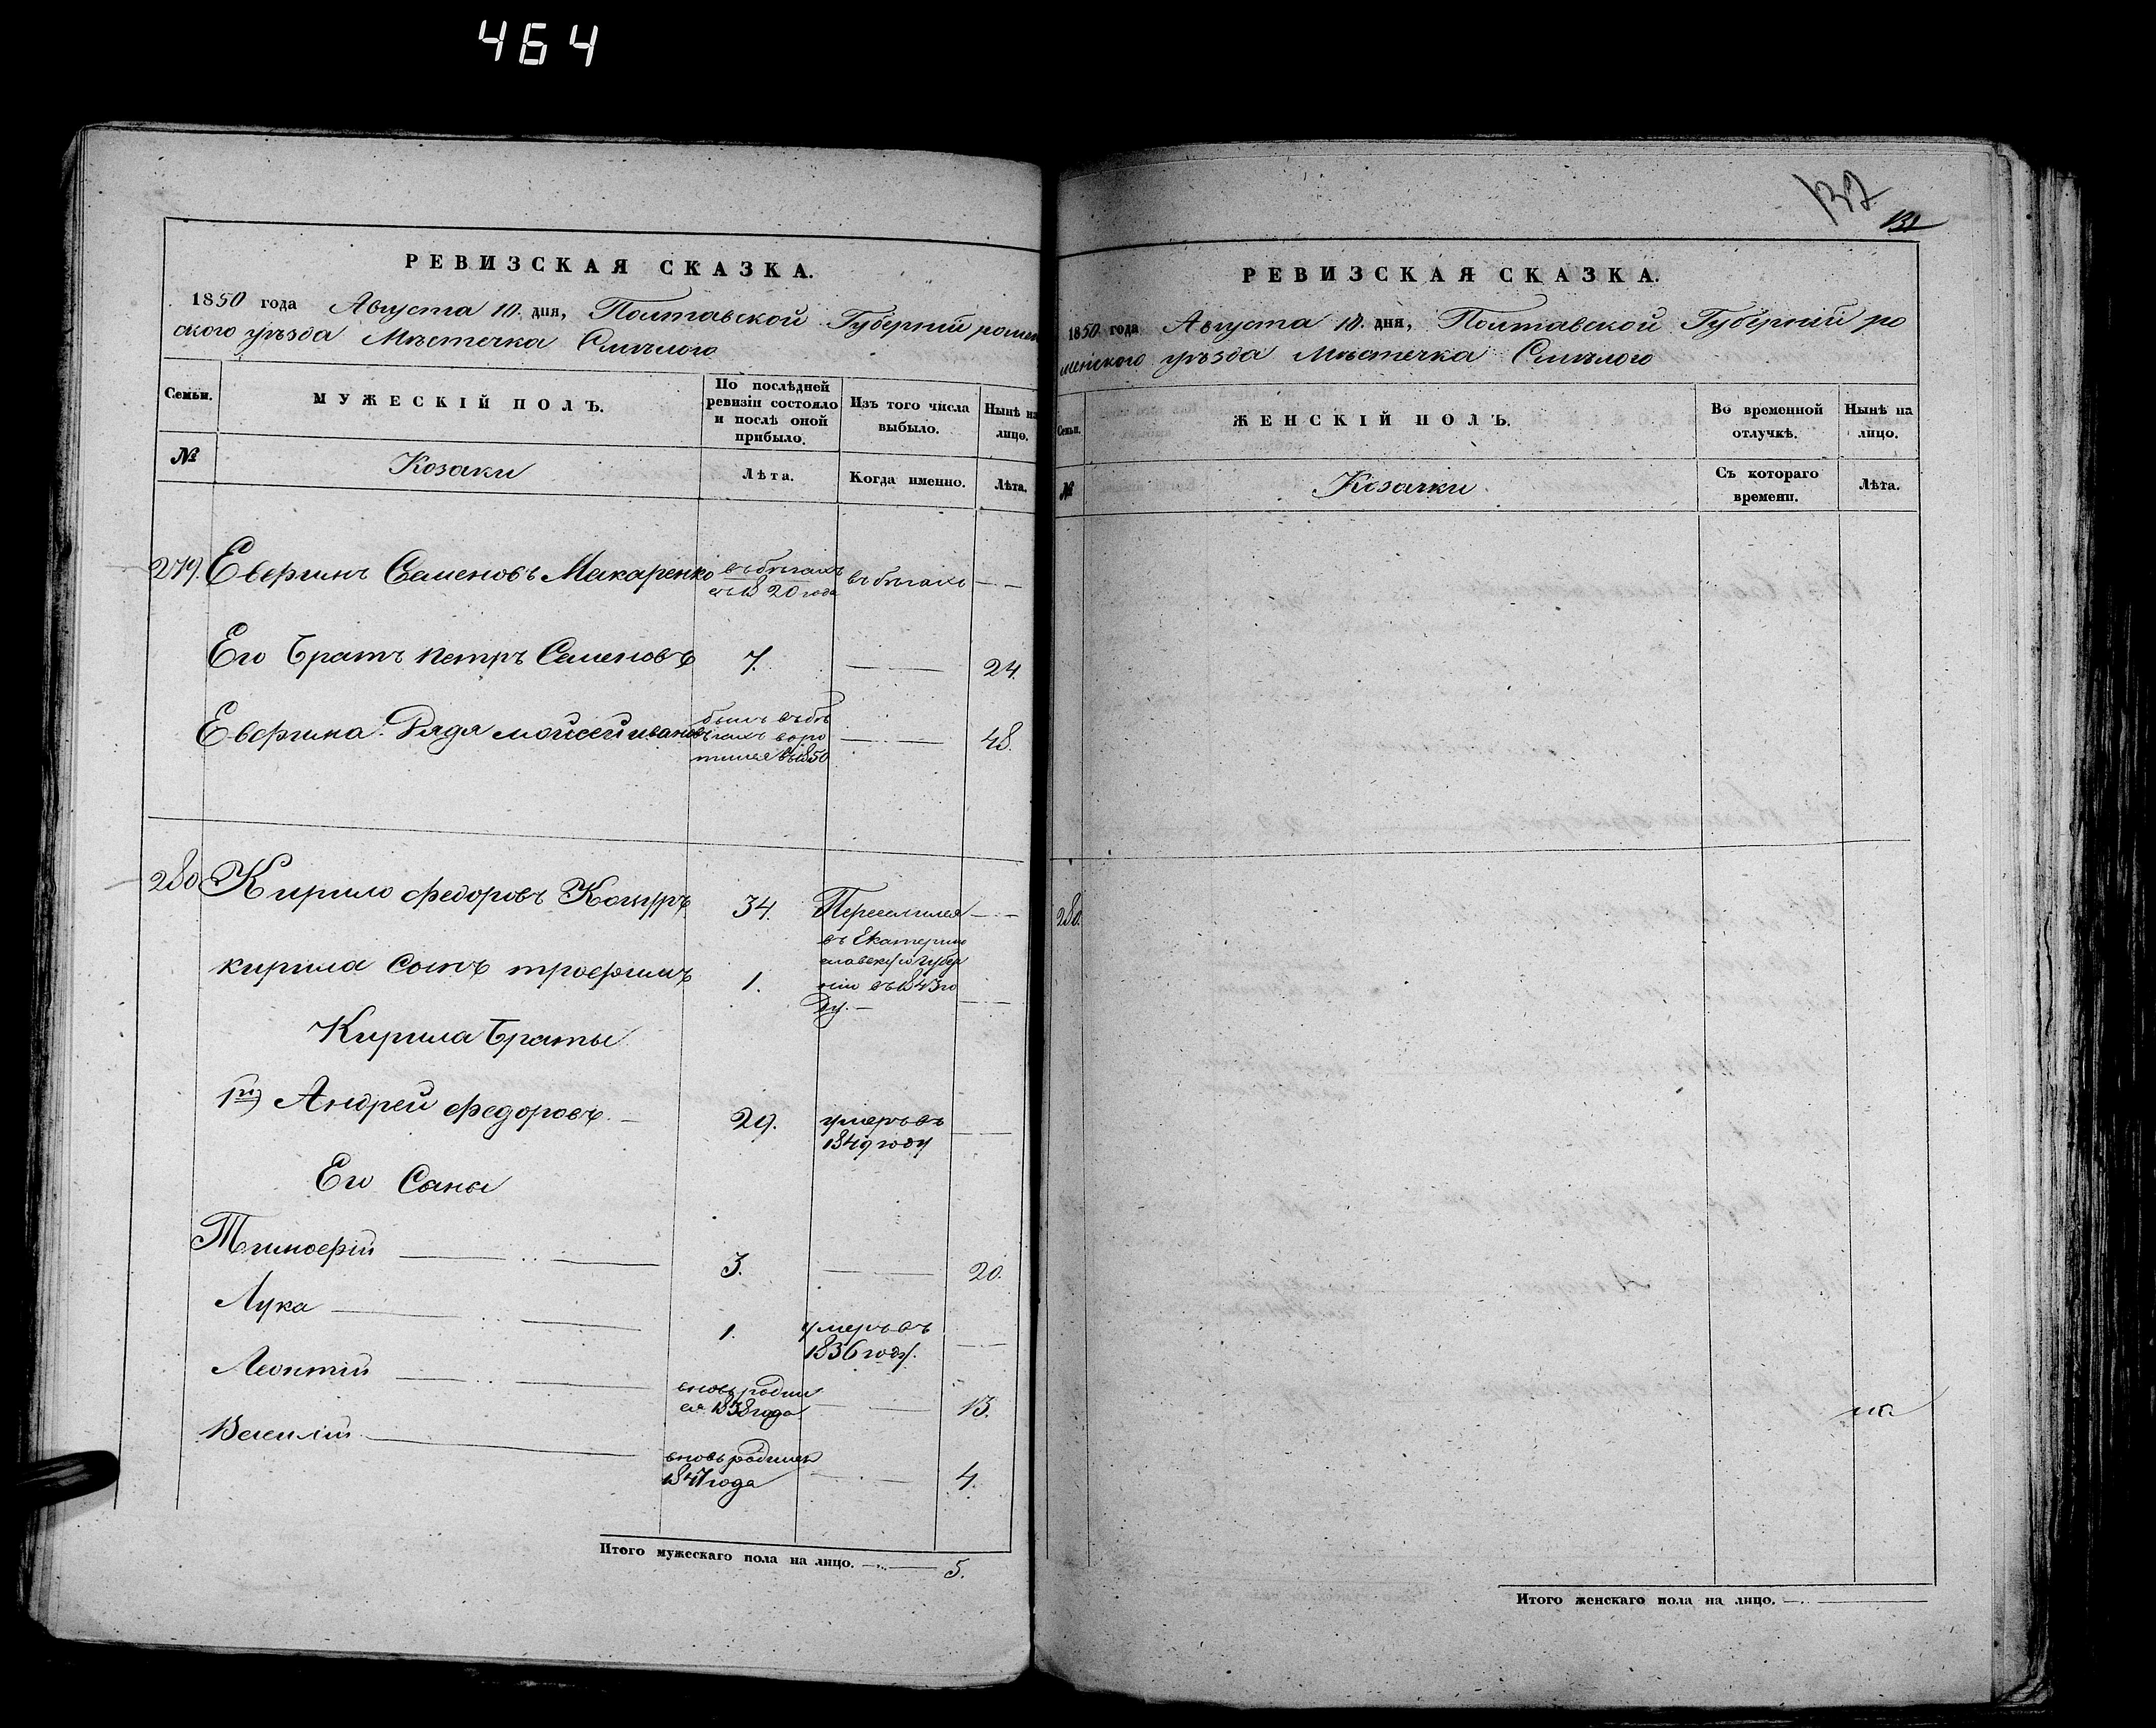 464
РЕВИЗСКАЯ СКАЗКА.
1850 года Августа 10. дня, Полтавской Губерніи ромен
ского уѣзда Мѣстечка Смѣлого
Семьи.
МУЖЕСКІЙ ПОЛЪ.
По послѣдней ревизіи состояло и послѣ оной прибыло.
Изъ того числа выбыло.
Нынѣ на лицо.
№
Козаки
Лѣта.
Когда именно.
Лѣта.
279. Семеновъ Макаренко въ бѣгахъ въ бѣгахъ — —
съ 1820 года
Его Братъ петръ Семеновъ 7. — — 24.
Дядя мойсей ивановъ былъ въ бѣ — — 48.
гахъ воро
тился въ 1850
280 Кирило Федоровъ 34. Переселился — —
въ Екатерино
славскую Губер
нію въ 1843 го
ду. —
кирила Сынъ трофимъ 1. — —
Кирила Браты
1й Андрей Федоровъ. — 29. умеръ въ —
1849 году
Его Сына
Тимофій — .. — 3. — — 20.
Лука — .. — 1. умеръ въ — —
1836 году.
Леонтій — .. — вновь родил — — 13.
ся 1838 года
Василій — вновь родился — . — 4.
1847 года
Итого мужескаго пола на лицо. — 5.
132
131
РЕВИЗСКАЯ СКАЗКА.
1850 года Августа 10. дня, Полтавской Губерніи ро
менского уѣзда Мѣстечка Смѣлого
Семьи.
ЖЕНСКІЙ ПОЛЪ.
Во временной отлучкѣ.
Нынѣ на лицо.
№
Козачки
Съ котораго времени.
Лѣта.
280.
Итого женскаго пола на лицо. —